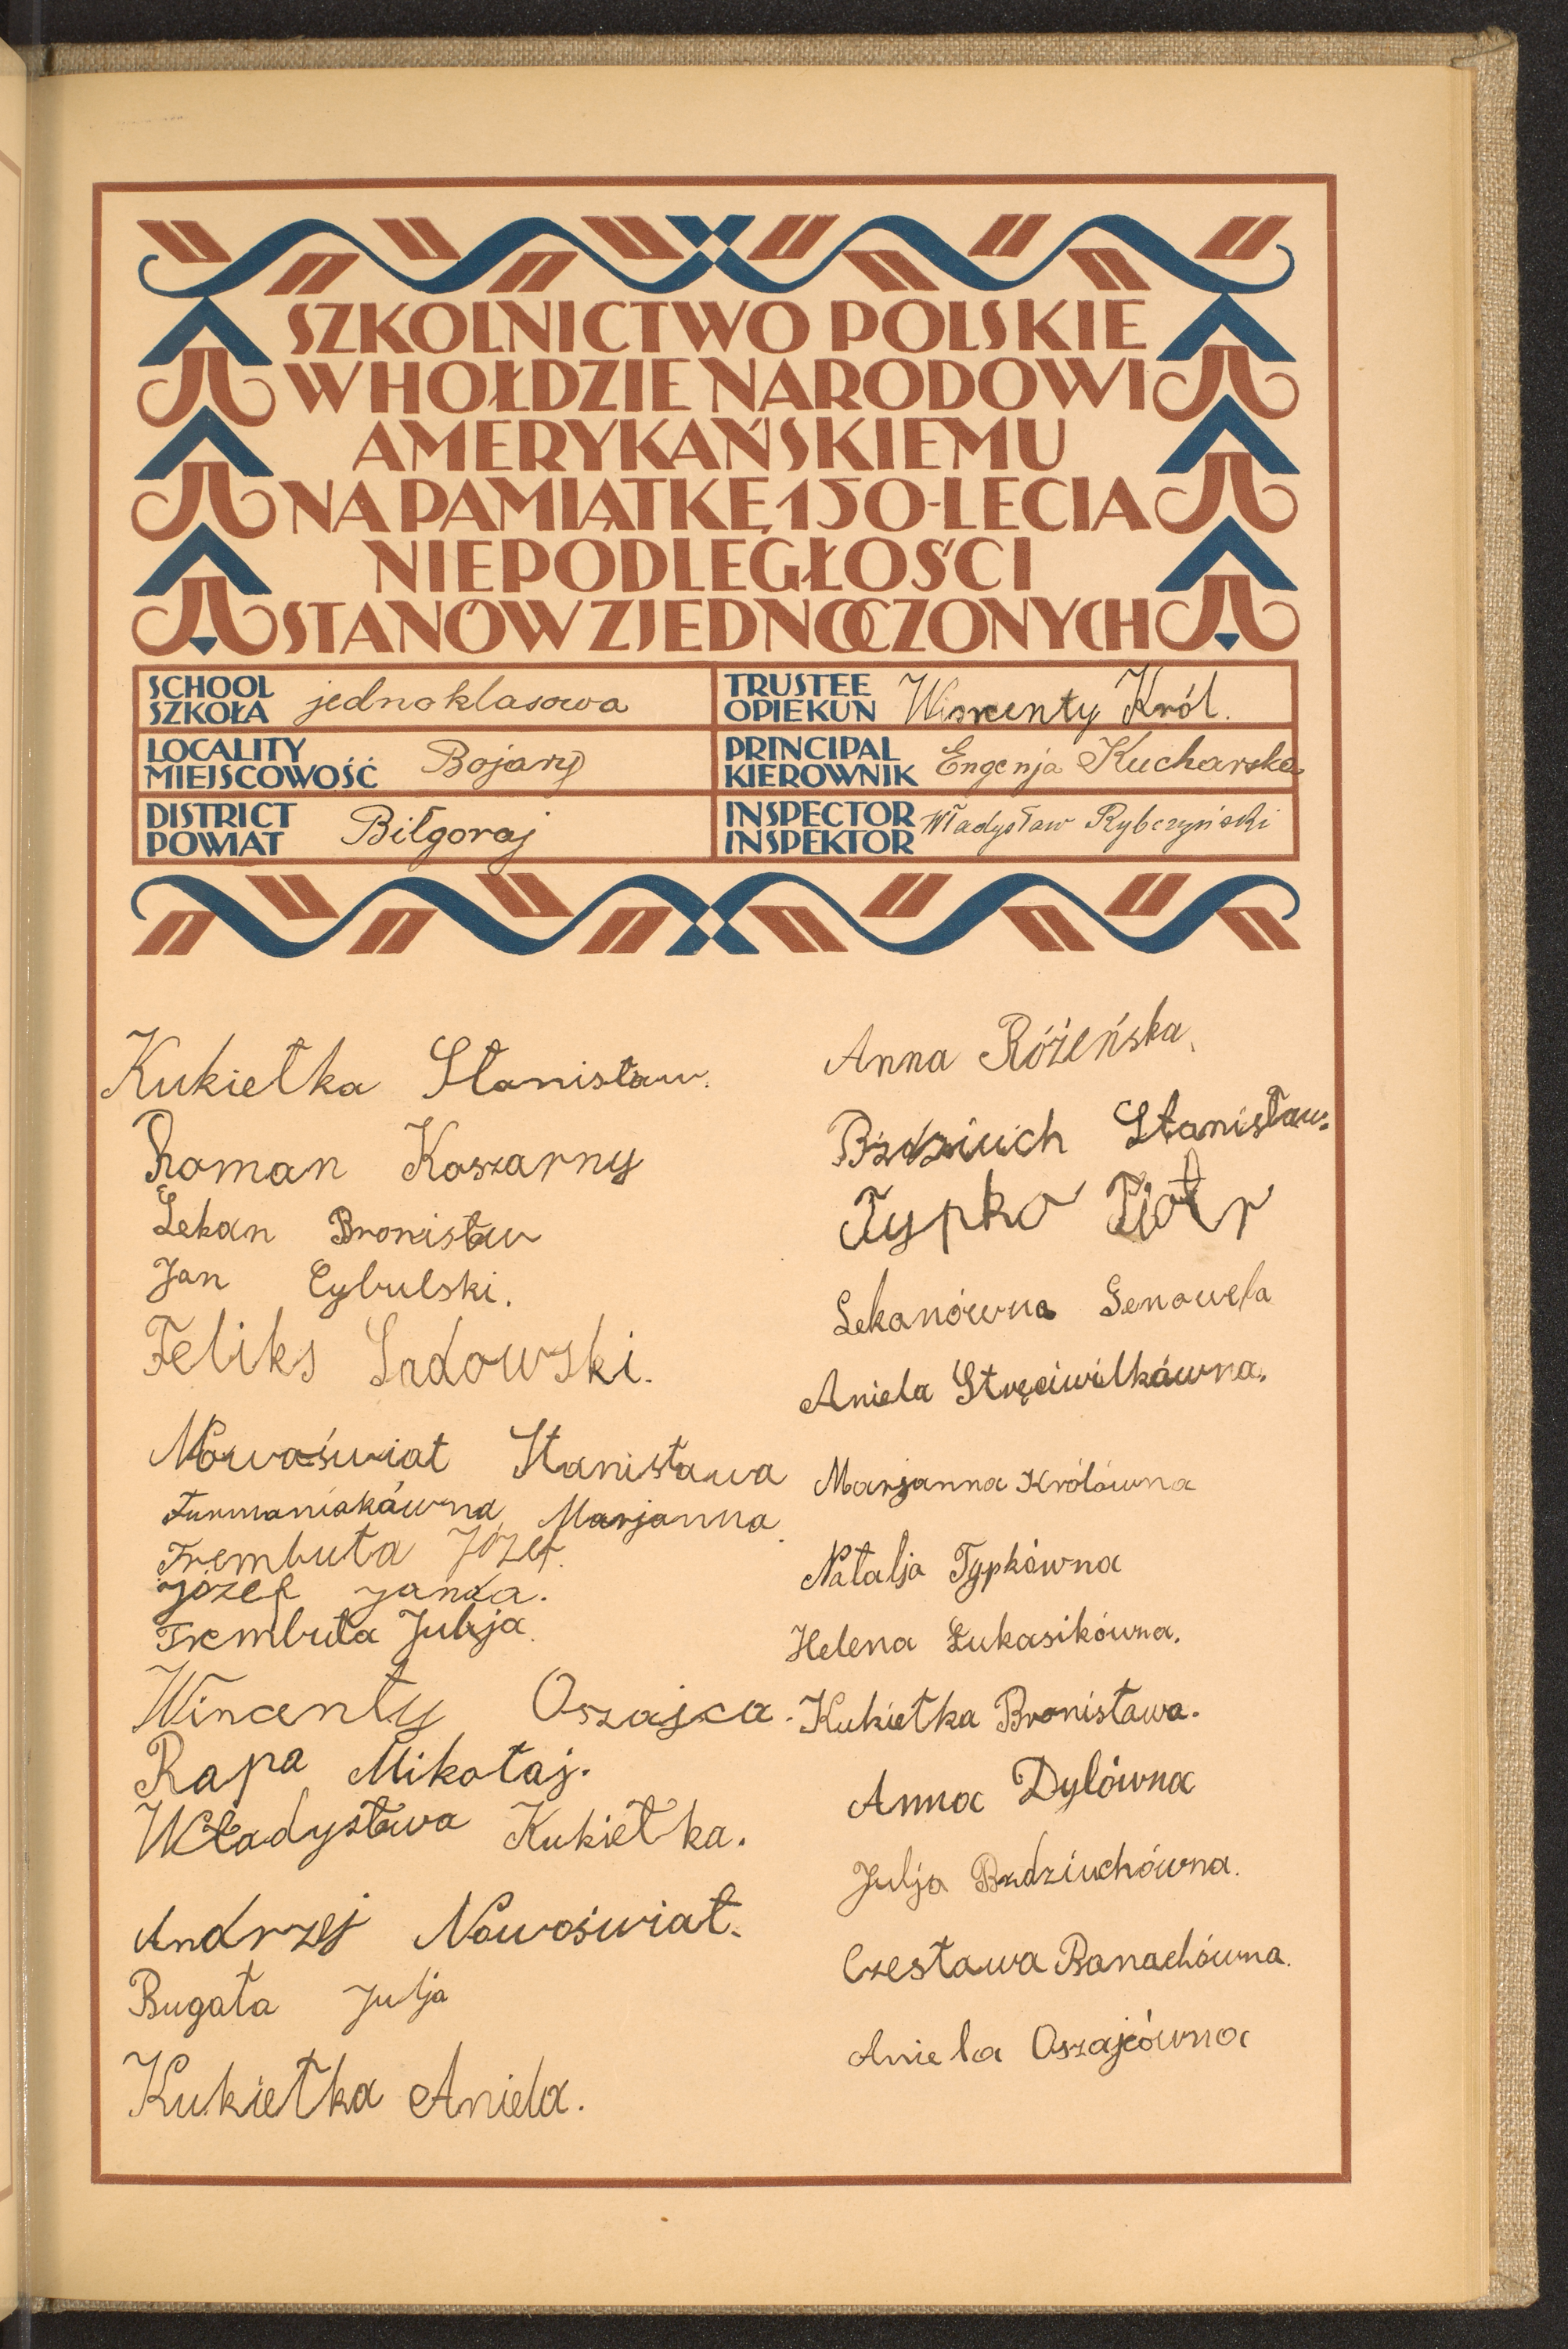 SZKOLNICTWO POLSKIE
W HOŁDZIE NARODOWI
AMERYKAŃSKIEMU
NA PAMIĄTKĘ 150-LECIA
NIEPODLEGŁOŚCI
STANÓW ZJEDNOCZONYCH
SCHOOL
SZKOŁA jednoklasowa
TRUSTEE
OPIEKUN Wincenty Król.
LOCALITY
MIEJSCOWOŚĆ Bojary
PRINCIPAL
KIEROWNIK Eugenja Kucharska
DISTRICT
POWIAT Biłgoraj
INSPECTOR
INSPEKTOR Władysław Rybczyński
Kukiełka Stanisław.
Roman Koszarny
Lekan Bronisław
Jan Cybulski.
Feliks Sadowski.
Nowoświat Stanisława
Furmaniakówna Marjanna
Trembuła Józef.
Józef Janda.
Trembuła Julja.
Wincenty Oszajca.
Rapa Mikołaj.
Władysława Kukiełka.
Andrzej Nowoświat.
Bugała Julja
Kukiełka Aniela.
Anna Różeńska.
Bździuch Stanisław.
Typko Piotr
Lekanówna Genowefa
Aniela Stręciwilkówna.
Marjanna Królówna
Natalja Typkówna
Helena Łukasikówna.
Kukiełka Bronisława.
Anna Dylówna
Julja Bzdziuchówna.
Czesława Banachówna.
Aniela Oszajcówna